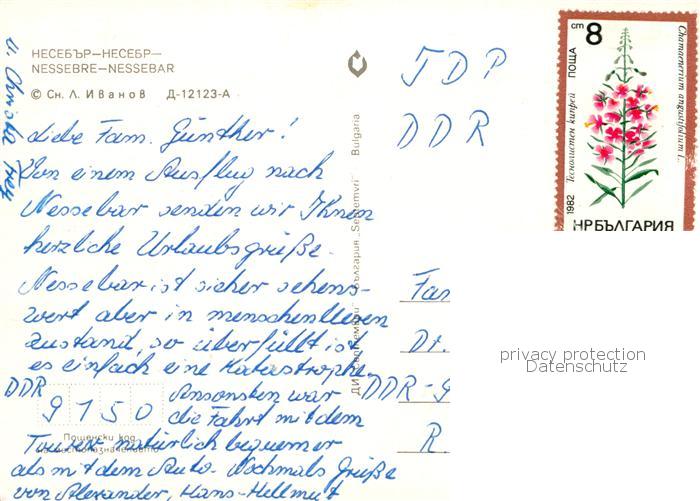 НЕСЕБЪР—НЕСЕБР—
NESSEBRE—NESSEBAR
© Сн. Л. Иванов Д-12123-А
Liebe Fam. Günther!
Von einem Ausflug nach
Nessebar senden wir Ihnen
herzliche Urlaubsgrüße.
Nessebar ist sicher sehens-
wert aber in menschenleeren
Zustand, so überfüllt ist
es einfach eine Katastrophe.
Ansonsten war
die Fahrt mit dem
Tourex natürlich bequemer
als mit dem Auto. Nochmals Grüße
von Alexander, Hans-Hellmut
u.
DDR
9150
Пощенски код
на местоназначението
"България „Septemvri" Bulgaria
ГДР
DDR
Fam
Dr.
DDR-9
R.
cm 8
ПОЩА
Chamaenerium angustifolium L.
Теснолистен кипрей
1982
НРБЪЛГАРИЯ
privacy protection
Datenschutz